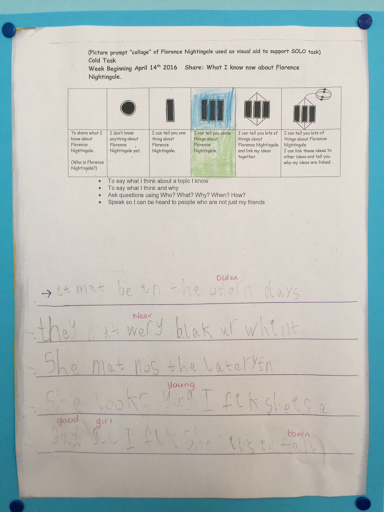 (Picture prompt "collage" of Florence Nightingale used as visual aid to support SOLO task)
Cold Task
Week Beginning April 14th 2016 Share: What I know now about Florence
Nightingale.
To share what I know about Florence Nightingale.
(Who is Florence Nightingale?)
I don't know anything about Florence Nightingale yet.
I can tell you one thing about Florence Nightingale.
I can tell you some things about Florence Nightingale.
I can tell you lots of things about Florence Nightingale and link my ideas together.
I can tell you lots of things about Florence Nightingale
I can link these ideas to other ideas and tell you who my ideas are linked.
• To say what I think about a topic I know
• To say what I think and why
• Ask questions using Who? What? Why? When? How?
• Speak so I can be heard to people who are not just my friends
Olden
→ it mst be in the days
Near
they wery blak ur
She mat nos the
young
looks I fck a
good girl town
I fck